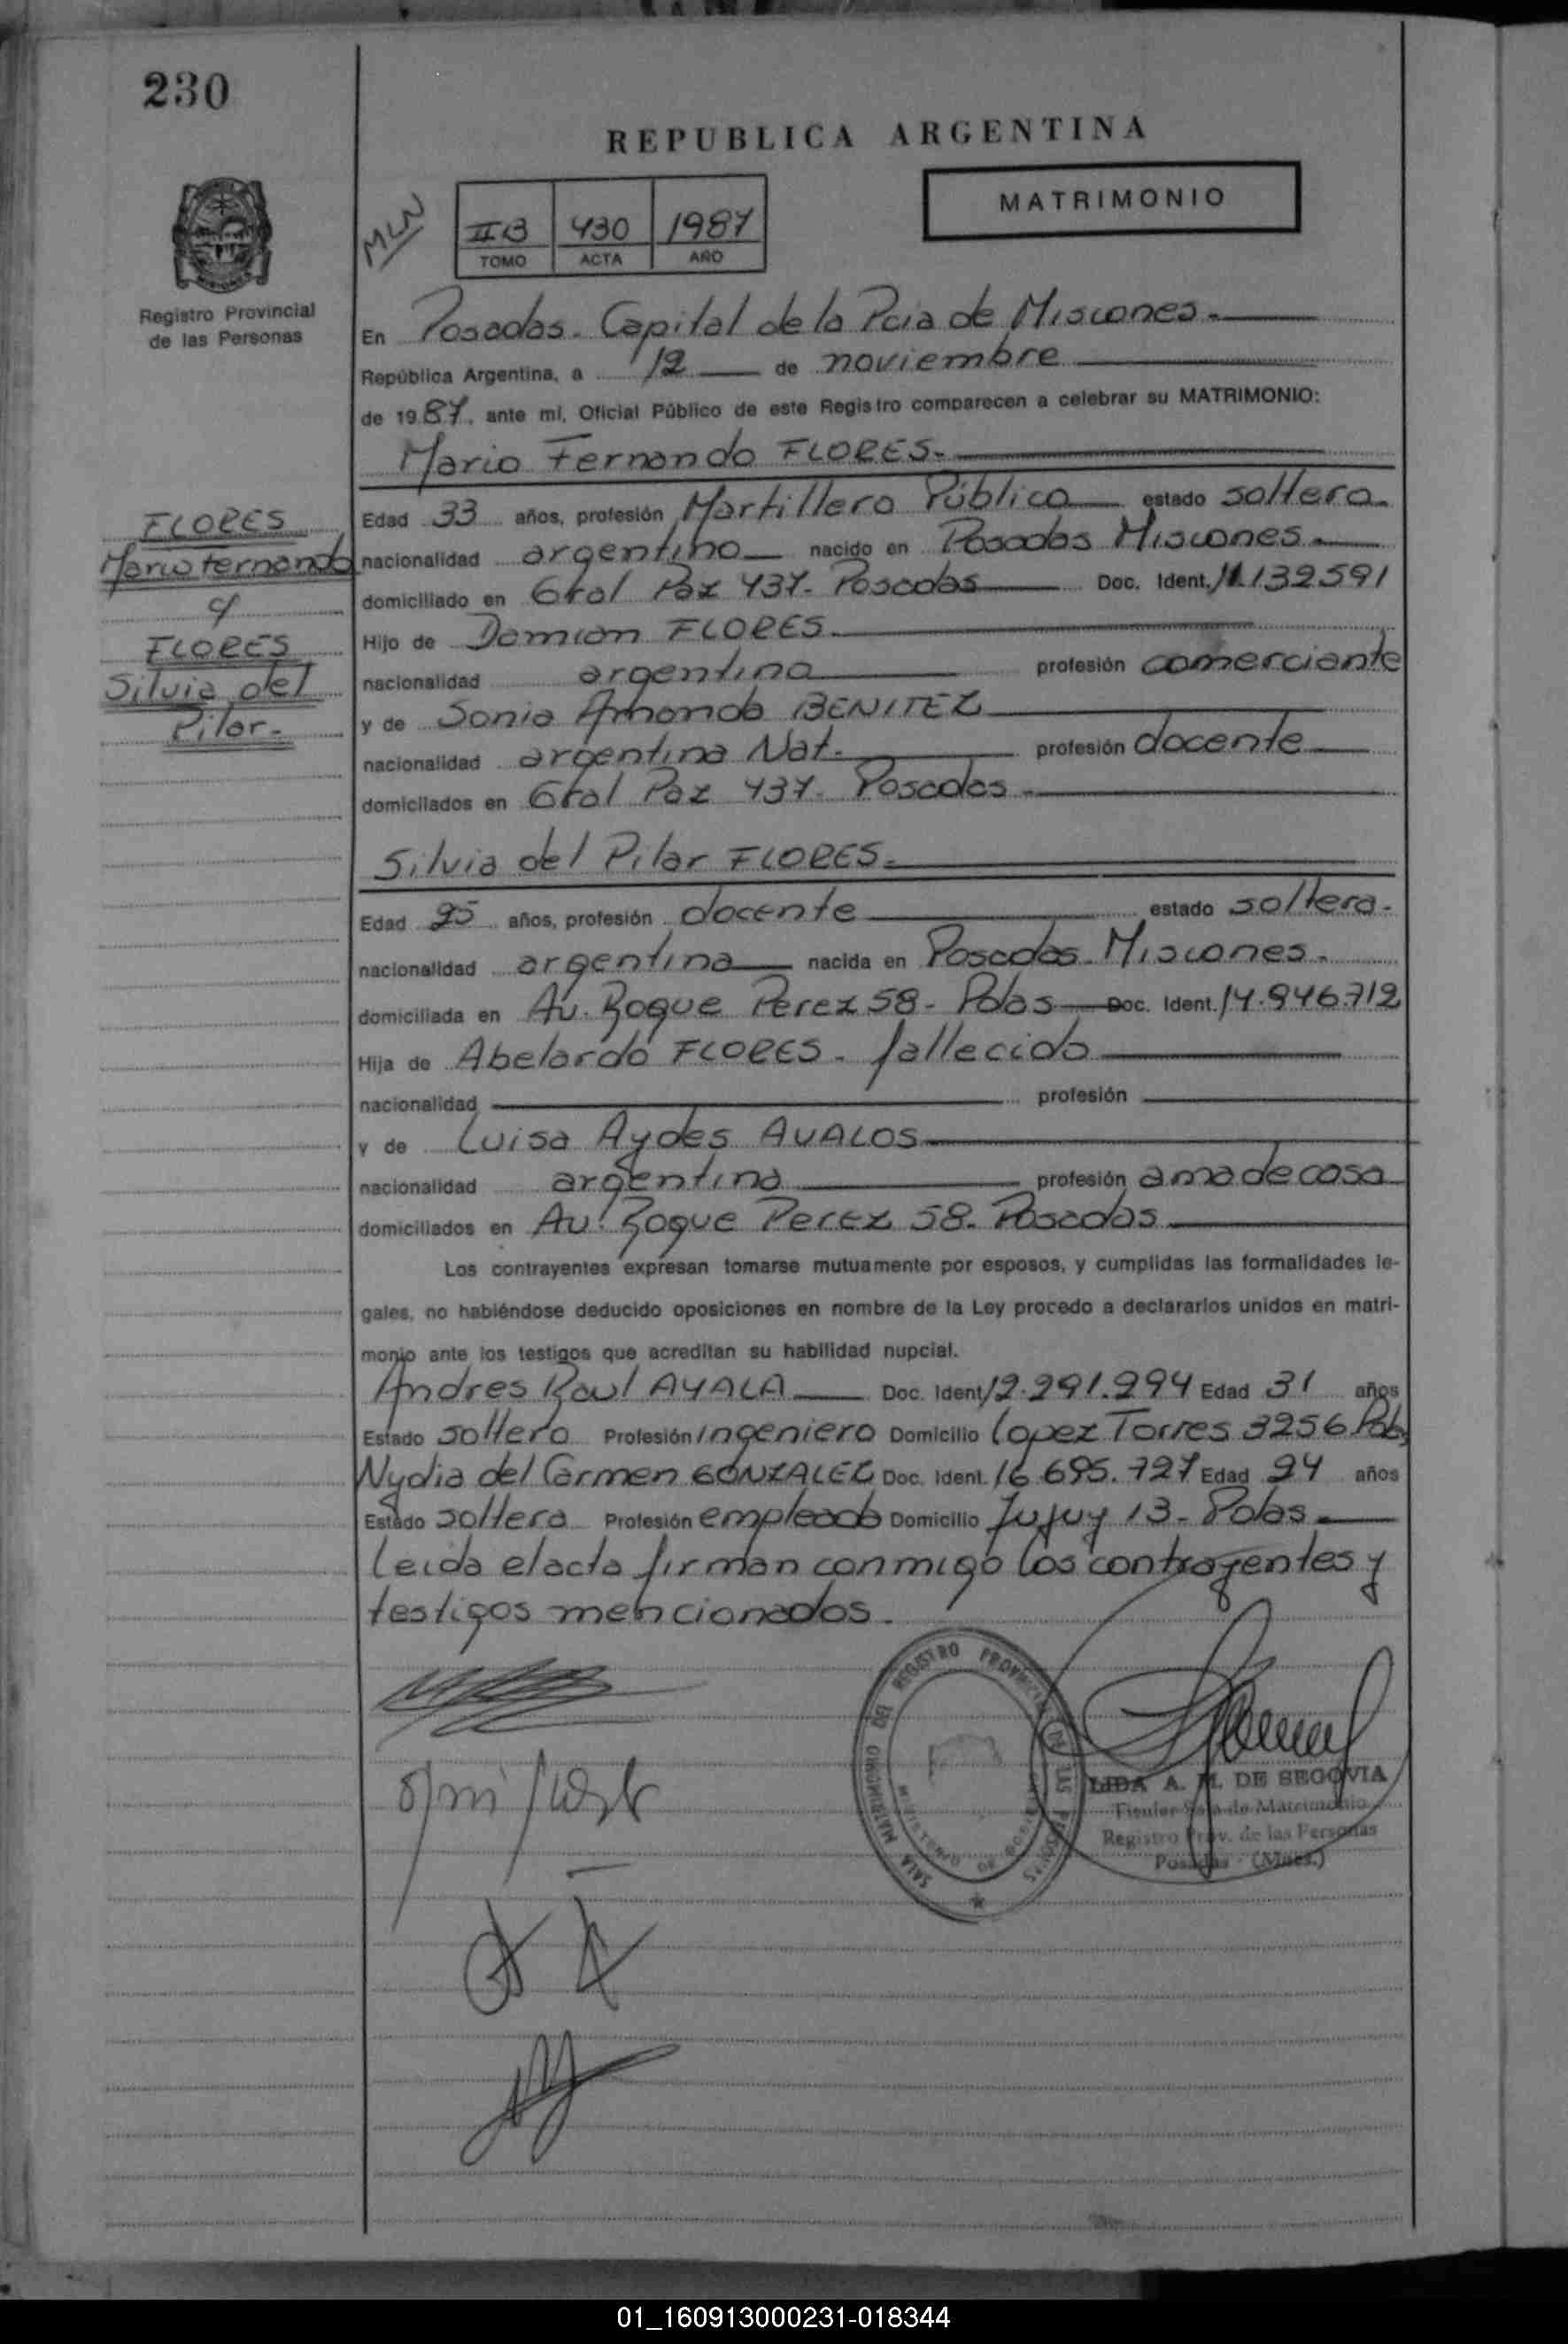 230
REPUBLICA ARGENTINA
MATRIMONIO
MLN
IIB 430 1987
TOMO ACTA AÑO
Registro Provincial
de las Personas
En Posadas. Capital de la Pcia de Misiones.
República Argentina, a 12 de noviembre
de 1987, ante mí, Oficial Público de este Registro comparecen a celebrar su MATRIMONIO:
Mario Fernando FLORES.
FLORES
Mario Fernando
c/
FLORES
Silvia del
Pilar.
Edad 33 años, profesión Martillero Público estado soltero.
nacionalidad argentino nacido en Posadas Misiones.
domiciliado en Gral Paz 437. Posadas Doc. Ident. 11.132591
Hijo de Damian FLORES.
nacionalidad argentina profesión comerciante
y de Sonia Amanda BENITEZ
nacionalidad argentina Nat. profesión docente
domiciliados en Gral Paz 437. Posadas.
Silvia del Pilar FLORES.
Edad 25 años, profesión docente estado soltera.
nacionalidad argentina nacida en Posadas. Misiones.
domiciliada en Av. Roque Perez 58. Pdas Doc. Ident. 14.946.712
Hija de Abelardo FLORES. fallecido
nacionalidad profesión
y de Luisa Aydes AVALOS
nacionalidad argentina profesión ama de casa
domiciliados en Av. Roque Perez 58. Posadas
Los contrayentes expresan tomarse mutuamente por esposos, y cumplidas las formalidades le-
gales, no habiéndose deducido oposiciones en nombre de la Ley procedo a declararlos unidos en matri-
monio ante los testigos que acreditan su habilidad nupcial.
Andres Raul AYALA Doc. Ident. 12.291.294 Edad 31 años
Estado soltero Profesión ingeniero Domicilio Lopez Torres 3256 Pdas
Nydia del Carmen GONZALEZ Doc. Ident. 16.695.727 Edad 24 años
Estado soltera Profesión empleada Domicilio Jujuy 13. Pdas.
Leida el acta firman conmigo los contrayentes y
testigos mencionados.
SALA MATRIMONIO DEL REGISTRO PROVINCIAL DE LAS PERSONAS
MINISTERIO DE GOBIERNO
LIDA A. M. DE SEGOVIA
Titular Sala de Matrimonio
Registro Prov. de las Personas
Posadas - (Mnes.)
01_160913000231-018344